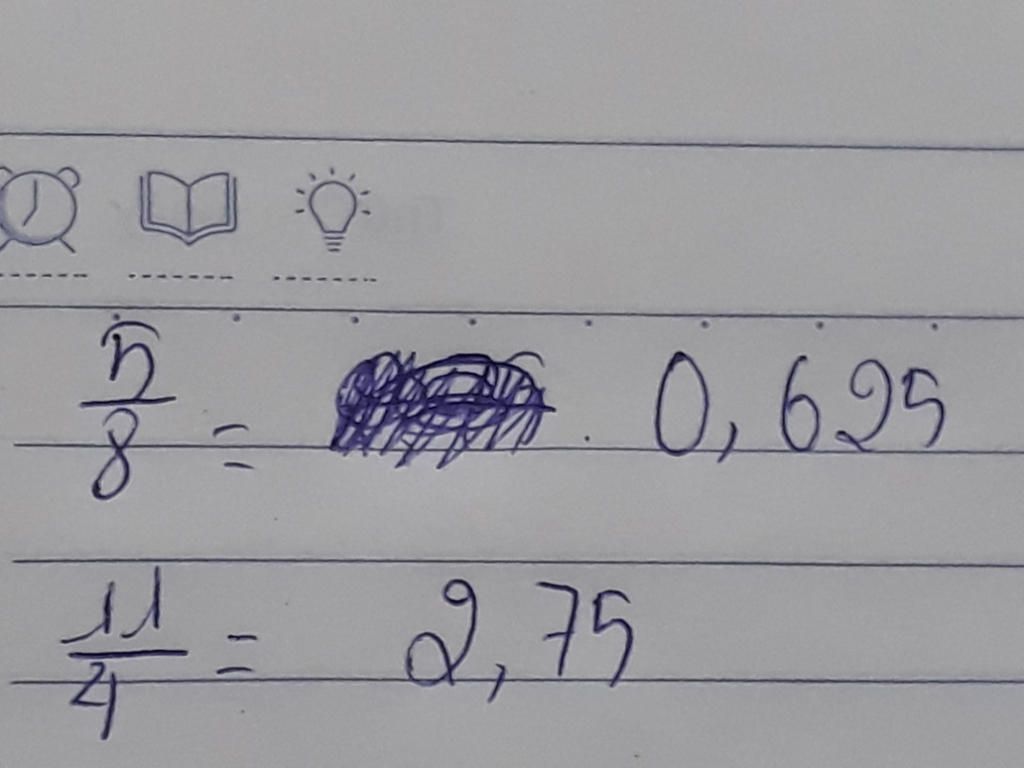 5/8 = 0,625
11/4 = 2,75